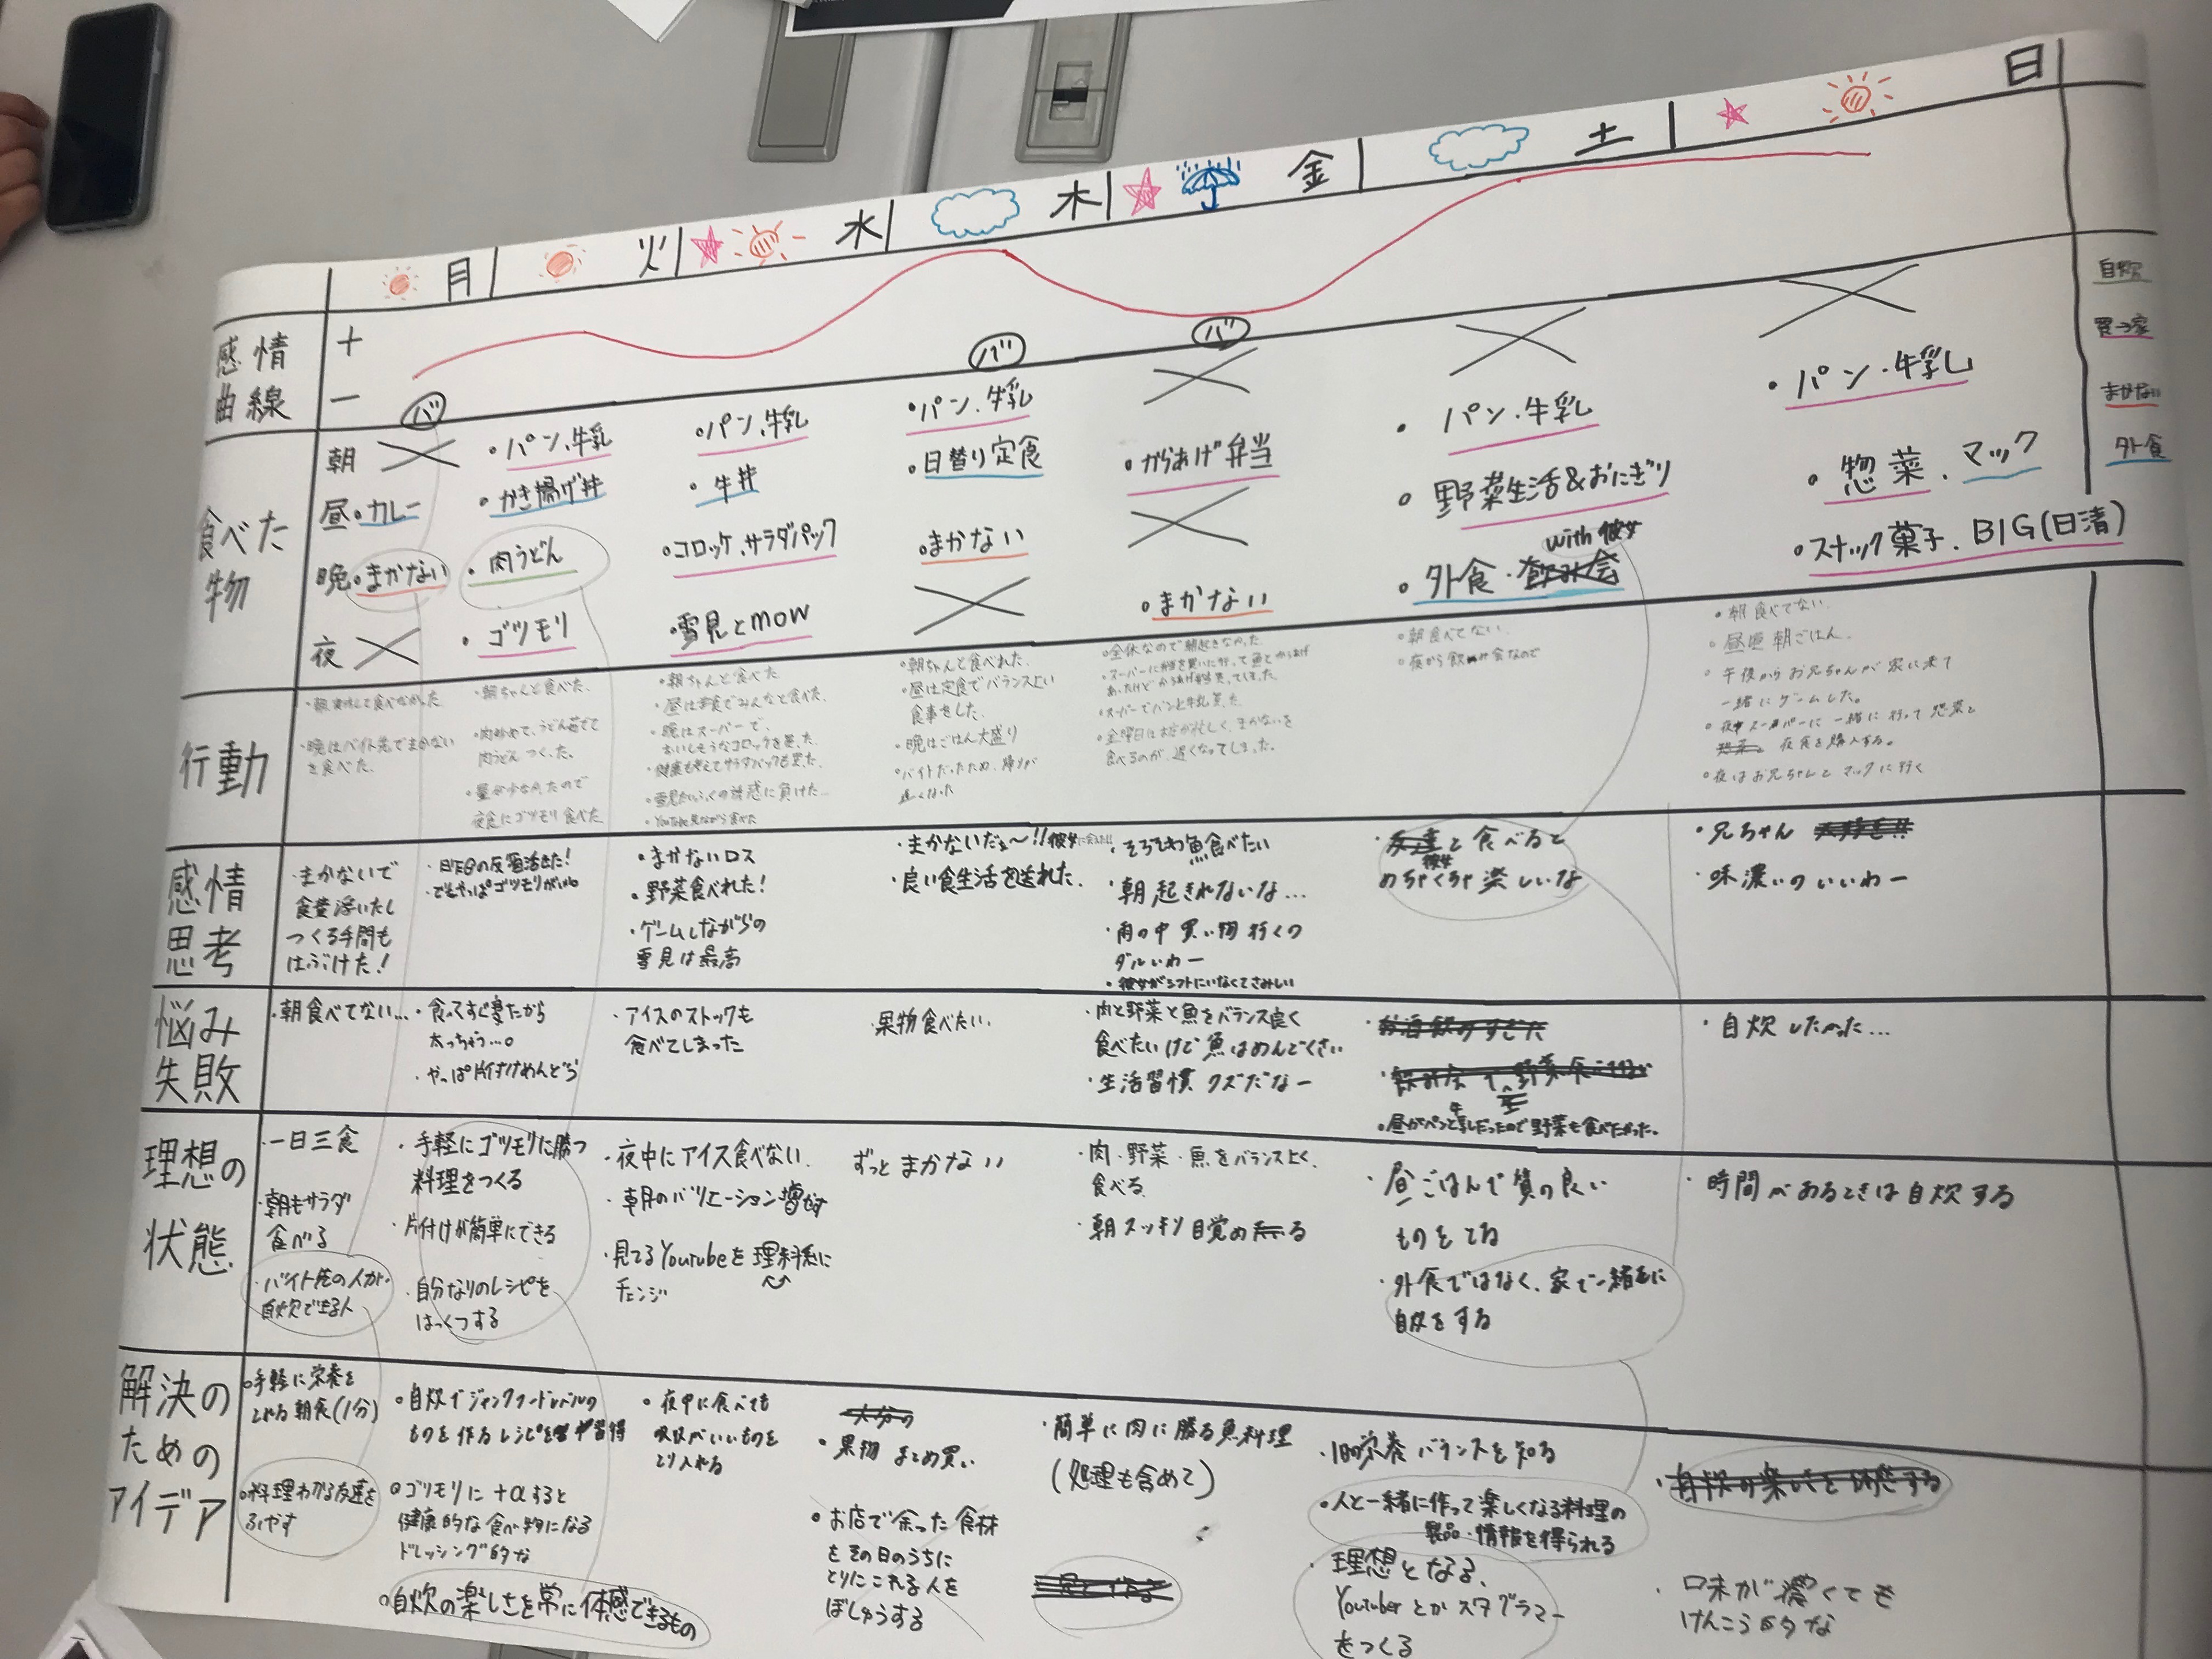 月
火
水
木
金
土
日
感情
曲線
+
−
バ
バ
バ
自炊
買→家
まかない
外食
食べた
物
朝
・パン、牛乳
・パン、牛乳
・パン、牛乳
・パン・牛乳
・パン・牛乳
昼
・カレー
・かき揚げ丼
・牛丼
・日替り定食
・からあげ弁当
・野菜生活&おにぎり
・惣菜、マック
晩
・まかない
・肉うどん
・コロッケ、サラダパック
・まかない
with 彼女
・外食・
・スナック菓子、BIG(日清)
夜
・ゴツモリ
・雪見とmow
・まかない
行動
・晩はバイト先でまかない
を食べた。
・朝ちゃんと食べた、
・肉炒めて、うどん茹でて
肉うどんつくった。
・量が少なかったので
夜食にゴツモリ食べた
・朝ちゃんと食べた
・昼は学食でみんなと食べた、
・晩はスーパーで、
おいしそうなコロッケを買った、
・健康も考えてサラダパックも買った、
・雪見だいふくの誘惑に負けた…
・YouTube見ながら食べた
・朝ちゃんと食べれた、
・昼は定食でバランスよい
食事をした、
・晩はごはん大盛り
・バイトだったため、帰りが
遅くなった
・全休なので朝起きなかった
・スーパーでパンと牛乳買った、
・金曜日はお店が忙しく、まかないを
食べるのが、遅くなってしまった。
・朝食べてない、
・夜から飲み会なので
・朝食べてない、
・昼頃朝ごはん、
・午後からお兄ちゃんが家に来て
一緒にゲームした。
・夜中スーパーに一緒に行って惣菜と
夜食を購入する。
・夜はお兄ちゃんとマックに行く
感情
思考
・まかないで
食費浮いたし
つくる手間も
はぶけた!
・昨日の反省活きた!
・でもやっぱゴツモリがいい。
・まかないロス
・野菜食べれた!
・ゲームしながらの
雪見は最高
・まかないだぁ〜!!
・良い食生活を送れた、
・そろそろ魚食べたい
・朝起きれないな…
・雨の中買い物行くの
ダルいわー
・彼女がシフトにいなくてさみしい
彼女
・と食べると
めちゃくちゃ楽しいな
・兄ちゃん
・味濃いのいいわー
悩み
失敗
・朝食べてない…
・食ってすぐ寝たから
太っちゃう…。
・やっぱ片付けめんどう
・アイスのストックも
食べてしまった
・果物食べたい、
・肉と野菜と魚をバランス良く
食べたいけど魚はめんどくさい
・生活習慣クズだなー
・自炊したかった…
理想の
状態
・一日三食
・朝もサラダ
食べる
・バイト先の人が、
自炊できる人
・手軽にゴツモリに勝つ
料理をつくる
・片付けが簡単にできる
・自分なりのレシピを
はっくつする
・夜中にアイス食べない、
・朝のバリエーション増やす
・見てるYoutubeを理料系に
チェンジ
ずっとまかない
・肉・野菜・魚をバランスよく、
食べる、
・朝スッキリ目覚める
・昼ごはんで質の良い
ものをとる
・外食ではなく、家で一緒に
自炊をする
・時間があるときは自炊する
解決の
ための
アイデア
・手軽に栄養を
とれる朝食(1分)
・料理わかる友達を
ふやす
・自炊でジャンクフードレベルの
ものを作るレシピを習得
・ゴツモリに+αすると
健康的な食べ物になる
ドレッシング的な
・自炊の楽しさを常に体感できるもの
・夜中に食べても
吸収がいいものを
とり入れる
・果物まとめ買い
・お店で余った食材
をその日のうちに
とりにこれる人を
ぼしゅうする
・簡単に肉に勝る魚料理
(処理も含めて)
・1日の栄養バランスを知る
・人と一緒に作って楽しくなる料理の
製品・情報を得られる
・理想となる、
Youtuberとかスタグラマー
をつくる
・味が濃くても
けんこう的な